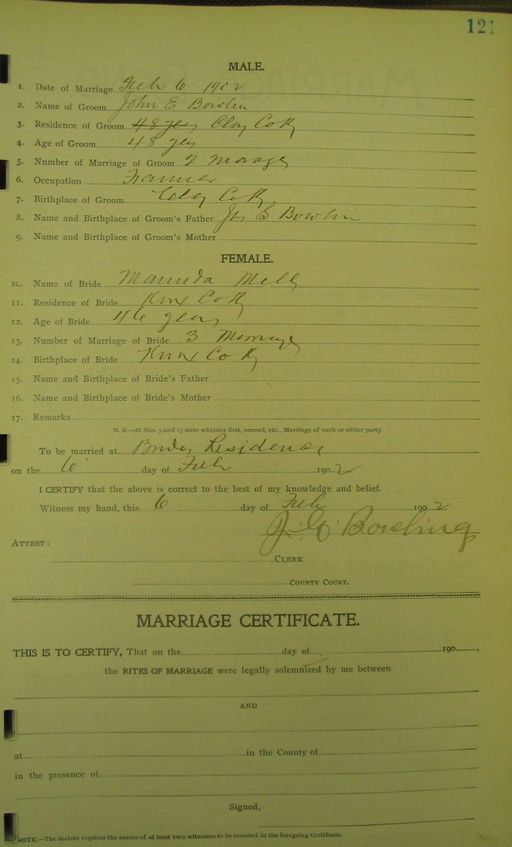 121
MALE.
1. Date of Marriage Feb 6 1902
2. Name of Groom John E Bowlin
3. Residence of Groom 48 yers Clay Co Ky
4. Age of Groom 48 yers
5. Number of Marriage of Groom 2 Marage
6. Occupation Framer
7. Birthplace of Groom Clay Co Ky
8. Name and Birthplace of Groom's Father Bowlin
9. Name and Birthplace of Groom's Mother
FEMALE.
10. Name of Bride
11. Residence of Bride Knx Co Ky
12. Age of Bride 46 years
13. Number of Marriage of Bride 3 Marrage
14. Birthplace of Bride Knx Co Ky
15. Name and Birthplace of Bride's Father
16. Name and Birthplace of Bride's Mother
17. Remarks
N. B.—At Nos. 5 and 13 state whether first, second, etc., Marriage of each or either party.
To be married at Brides Residence
on the 6 day of Feb 1902
I CERTIFY that the above is correct to the best of my knowledge and belief.
Witness my hand, this 6 day of Feb 1902
Bowling
ATTEST:
CLERK
COUNTY COURT.
MARRIAGE CERTIFICATE.
THIS IS TO CERTIFY, That on the day of 190 ,
the RITES OF MARRIAGE were legally solemnized by me between
AND
at in the County of
in the presence of
Signed,
NOTE.—The Statute requires the names of at least two witnesses to be inserted in the foregoing Certificate.